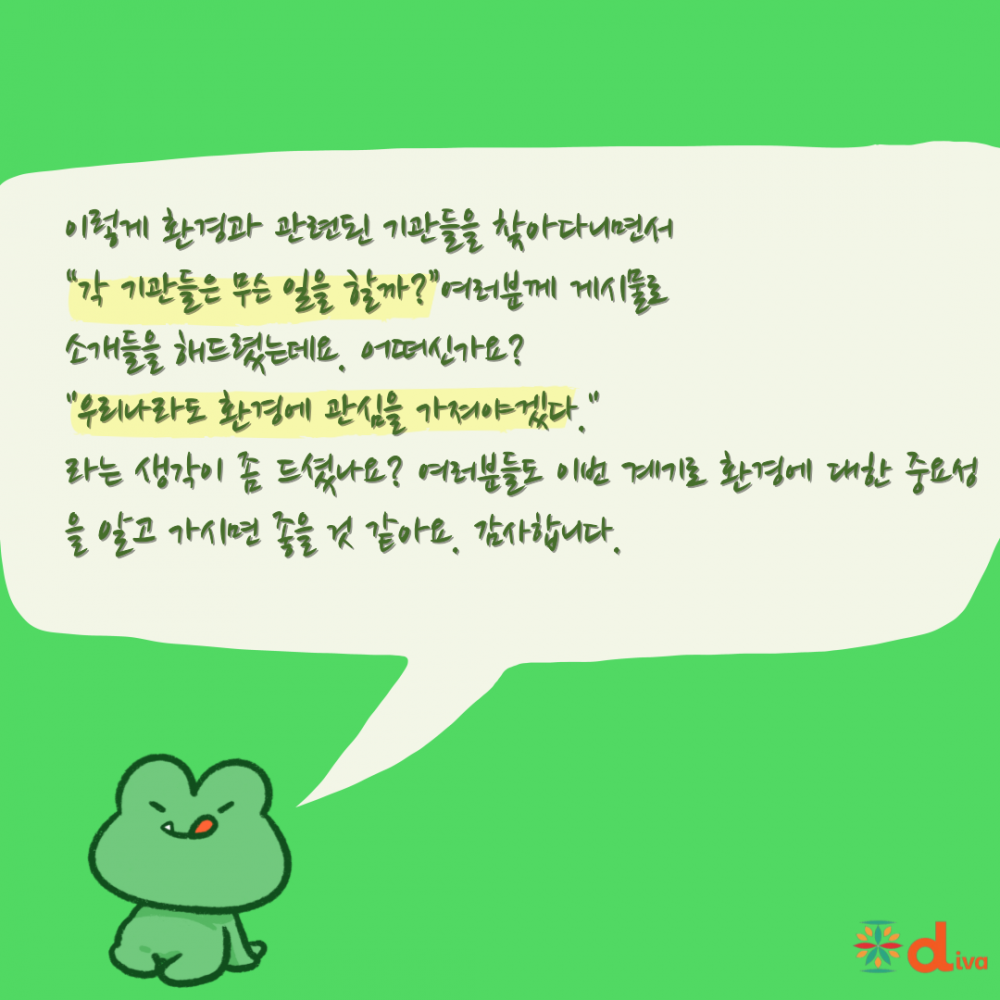 이렇게 환경과 관련된 기관들을 찾아다니면서
"각 기관들은 무슨 일을 할까?"여러분께 게시물로
소개들을 해드렸는데요. 어떠신가요?
"우리나라도 환경에 관심을 가져야겠다."
라는 생각이 좀 드셨나요? 여러분들도 이번 계기로 환경에 대한 중요성
을 알고 가시면 좋을 것 같아요. 감사합니다.
diva